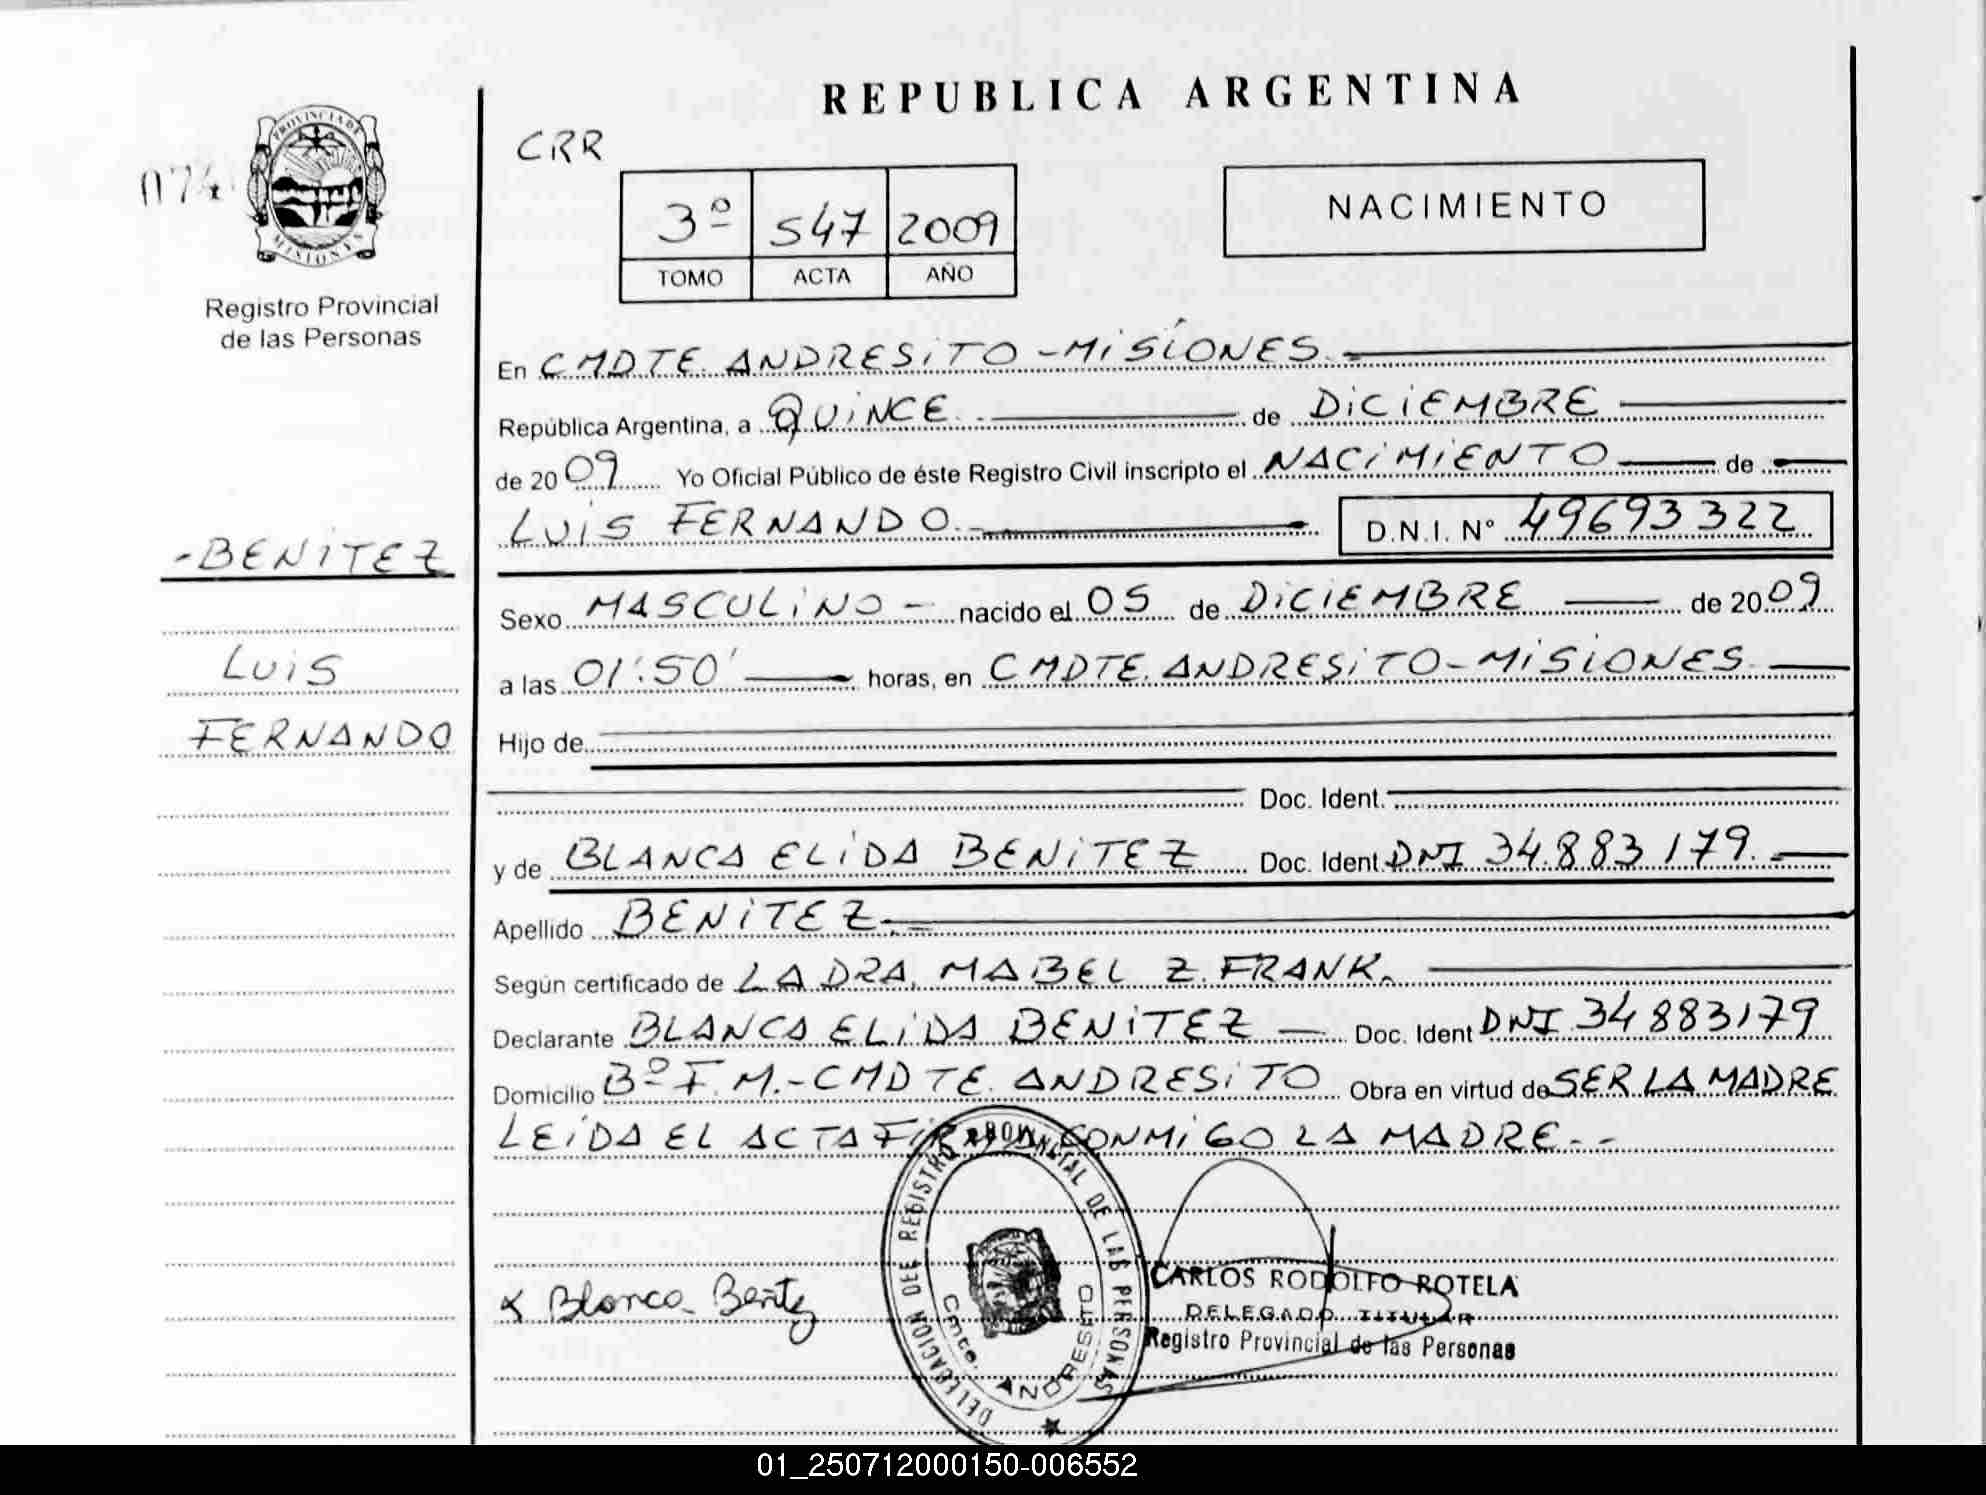 REPUBLICA ARGENTINA
CRR
074
PROVINCIA DE
MISIONES
Registro Provincial
de las Personas
3º 547 2009
TOMO ACTA AÑO
NACIMIENTO
En CMDTE. ANDRESITO - MISIONES.
República Argentina, a QUINCE de DICIEMBRE
de 2009 Yo Oficial Público de éste Registro Civil inscripto el NACIMIENTO de
LUIS FERNANDO. D.N.I. Nº 49693322
-BENITEZ
LUIS
FERNANDO
Sexo MASCULINO - nacido el 05 de DICIEMBRE de 2009
a las 01:50' horas, en CMDTE. ANDRESITO - MISIONES.
Hijo de
Doc. Ident.
y de BLANCA ELIDA BENITEZ Doc. Ident. DNI 34.883.179.
Apellido BENITEZ.
Según certificado de LA DRA. MABEL Z. FRANK.
Declarante BLANCA ELIDA BENITEZ - Doc. Ident DNI 34883179
Domicilio Bº F. M. - CMDTE. ANDRESITO Obra en virtud de SER LA MADRE
LEIDA EL ACTA FIRMA CONMIGO LA MADRE.--
DELEGACION DEL REGISTRO PROVINCIAL DE LAS PERSONAS
Cmte. ANDRESITO
x Blanca Benitez
CARLOS RODOLFO ROTELA
DELEGADO TITULAR
Registro Provincial de las Personas
01_250712000150-006552